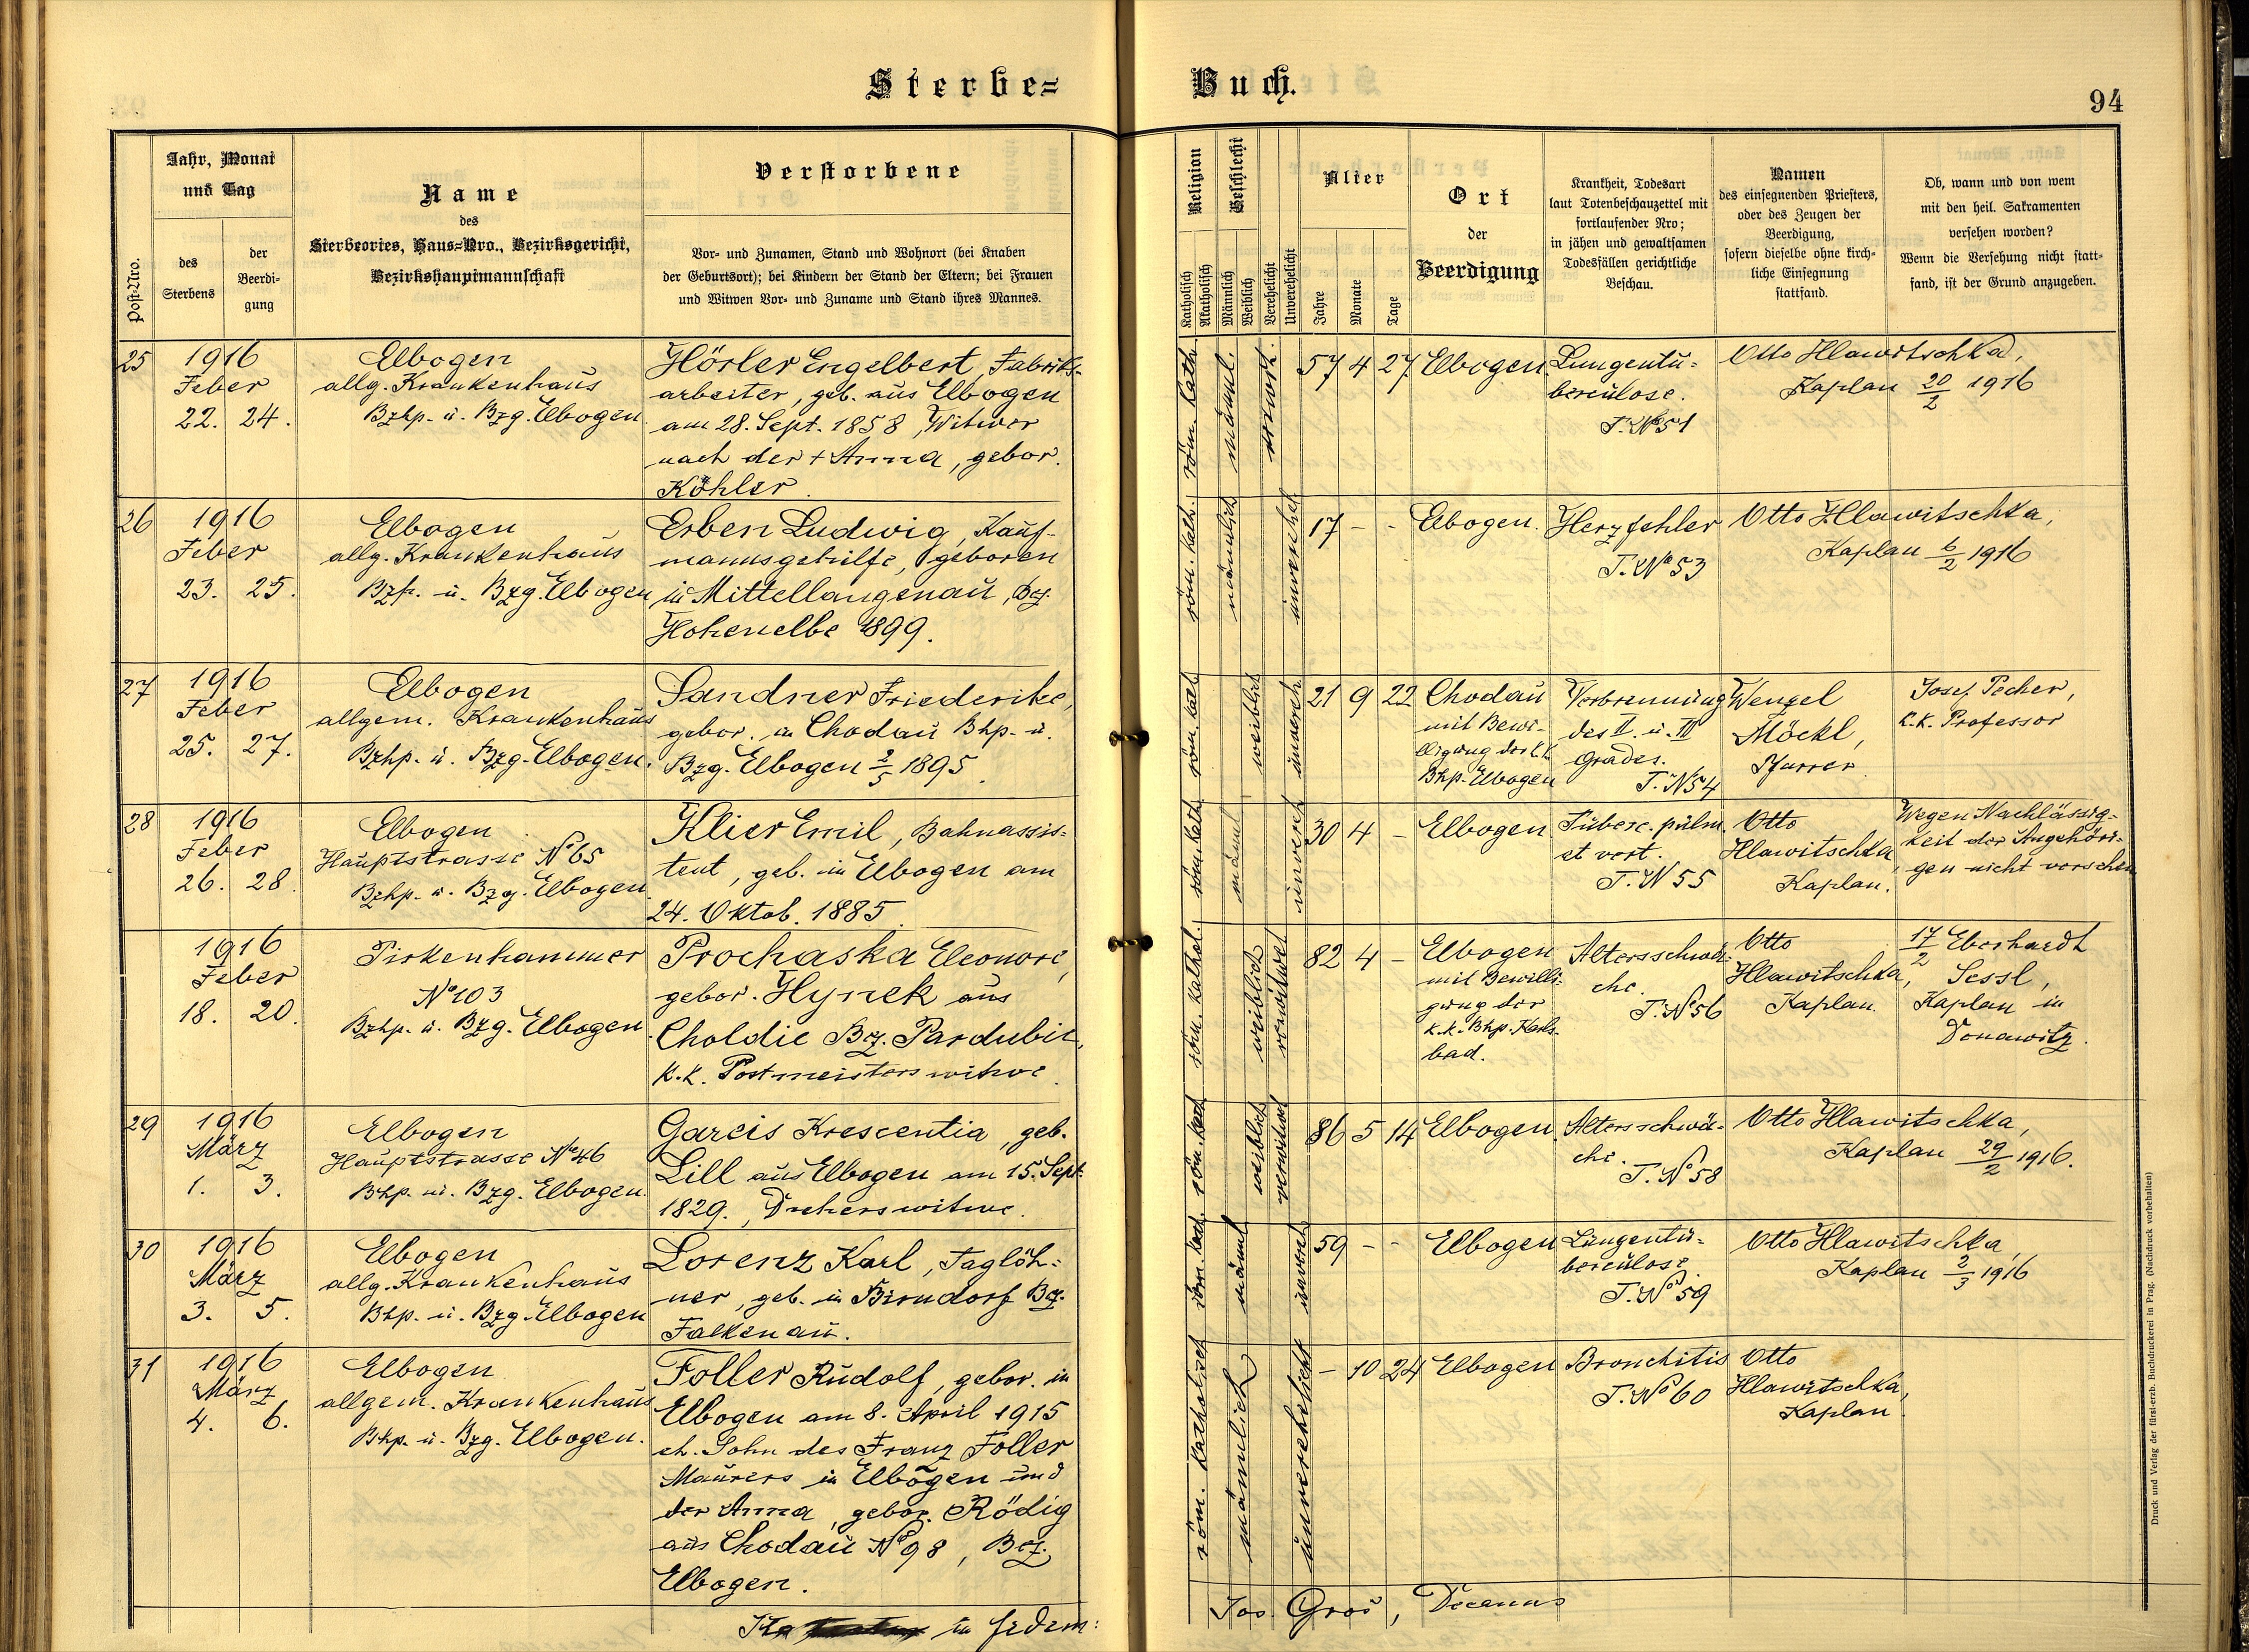 Sterbe=
Buch.
94
Post=Nro.
Jahr, Monat
und Tag
des
Sterbens
der
Beerdi-
gung
Name
des
Sterbeortes, Haus=Nro., Bezirksgericht,
Bezirkshauptmannschaft
Verstorbene
Vor= und Zunamen, Stand und Wohnort (bei Knaben
der Geburtsort); bei Kindern der Stand der Eltern; bei Frauen
und Witwen Vor= und Zuname und Stand ihres Mannes.
Religion
Katholisch
Akatholisch
Geschlecht
Männlich
Weiblich
Verehelicht
Unverehelicht
Alter
Jahre
Monate
Tage
Ort
der
Beerdigung
Krankheit, Todesart
laut Totenbeschauzettel mit
fortlaufender Nro;
in jähen und gewaltsamen
Todesfällen gerichtliche
Beschau.
Namen
des einsegnenden Priesters,
oder des Zeugen der
Beerdigung,
sofern dieselbe ohne kirch-
liche Einsegnung
stattfand.
Ob, wann und von wem
mit den heil. Sakramenten
versehen worden?
Wenn die Versehung nicht statt-
fand, ist der Grund anzugeben.
25
1916
Feber
22. 24.
Elbogen
allg. Krankenhaus
Bzhp. u. Bzg. Elbogen
Hösler Engelbert, Fabriks-
arbeiter, geb. aus Elbogen
am 28. Sept. 1858, Witwer
nach der + Anna, gebor.
Köhler.
röm. kath.
männl.
verwit.
57 4 27
Elbogen
Lungentu=
berculose.
T. No 51
Otto Hlawitschka,
Kaplan 20/2 1916
26
1916
Feber
23. 25.
Elbogen
allg. Krankenhaus
Bzh. u. Bzg. Elbogen
Erben Ludwig, Kauf-
mannsgehilfe, geboren
in Mittellangenau, Bz.
Hohenelbe 1899.
röm. kath.
männlich
unverehel
17 - -
Elbogen.
Herzfehler
T. No 53
Otto Hlawitschka,
Kaplan 6/2 1916
27
1916
Feber
25. 27.
Elbogen
allgem. Krankenhaus
Bzhp. u. Bzg. Elbogen.
Sandner Friederike,
gebor. in Chodau Bhp. u.
Bzg. Elbogen 2/5 1895.
röm. kat
weiblich
unvereh
21 9 22
Chodau
mit Bewi-
lligung der k.k.
Bhp. Elbogen
Verbrennung
des II. u. III
Grades.
T. N 54
Wenzel
Möckl,
Pfarrer.
Josef Pecher,
k. k. Professor
28
1916
Feber
26. 28.
Elbogen
Hauptstrasse No 65
Bzhp. u. Bzg. Elbogen
Klier Emil, Bahnassis=
tent, geb. in Elbogen am
24. Oktob. 1885.
röm. kath.
männl
unvereh
30 4 -
Elbogen
Tuberc. pulm.
et vert.
T. N 55
Otto
Hlawitschka,
Kaplan.
Wegen Nachlässig-
keit der Angehöri-
gen nicht versehen
1916
Feber
18. 20.
Pirkenhammer
No 103
Bzhp. u. Bzg. Elbogen
Prochaska Eleonore,
gebor. Hynek aus
Choldic Bz. Pardubit,
k. k. Postmeisterswitwe.
röm. kathol.
weiblich
verwitwet
82 4 -
Elbogen
mit Bewilli=
gung der
k. k. Bhp. Karls-
bad.
Altersschwä-
che.
T. No 56
Otto
Hlawitschka,
Kaplan.
17/2 Eberhardt
Sessl,
Kaplan in
Donawitz.
29
1916
März
1. 3.
Elbogen
Hauptstrasse No 46
Bhp. u. Bzg. Elbogen.
Gareis Krescentia, geb.
Lill aus Elbogen am 15. Sept.
1829., Dreherswitwe.
röm. kath
weiblich
verwitwet
86 5 14
Elbogen
Altersschwä-
che.
T. No 58
Otto Hlawitschka,
Kaplan 29/2 1916.
30
1916
März
3. 5.
Elbogen
allg. Krankenhaus
Bhp. u. Bzg. Elbogen
Lorenz Karl, Taglöh=
ner, geb. in Birndorf Bz.
Falkenau.
röm. kath.
männl
unvereh
59 - -
Elbogen
Lungentu-
berculose.
T. No 59
Otto Hlawitschka,
Kaplan 2/3 1916
31
1916
März
4. 6.
Elbogen
allgem. Krankenhaus
Bhp. u. Bzg. Elbogen.
Foller Rudolf, gebor. in
Elbogen am 8. April 1915
eh. Sohn des Franz Foller
Maurers in Elbogen und
der Anna, gebor. Rödig
aus Chodau No 98, Bez.
Elbogen.
röm. katholisch
männlich
unverehelicht
- 10 24
Elbogen
Bronchitis
T. No 60
Otto
Hlawitschka,
Kaplan.
in fidem:
Jos. Groš, Decanus
Druck und Verlag der fürst-erzb. Buchdruckerei in Prag. (Nachdruck vorbehalten)